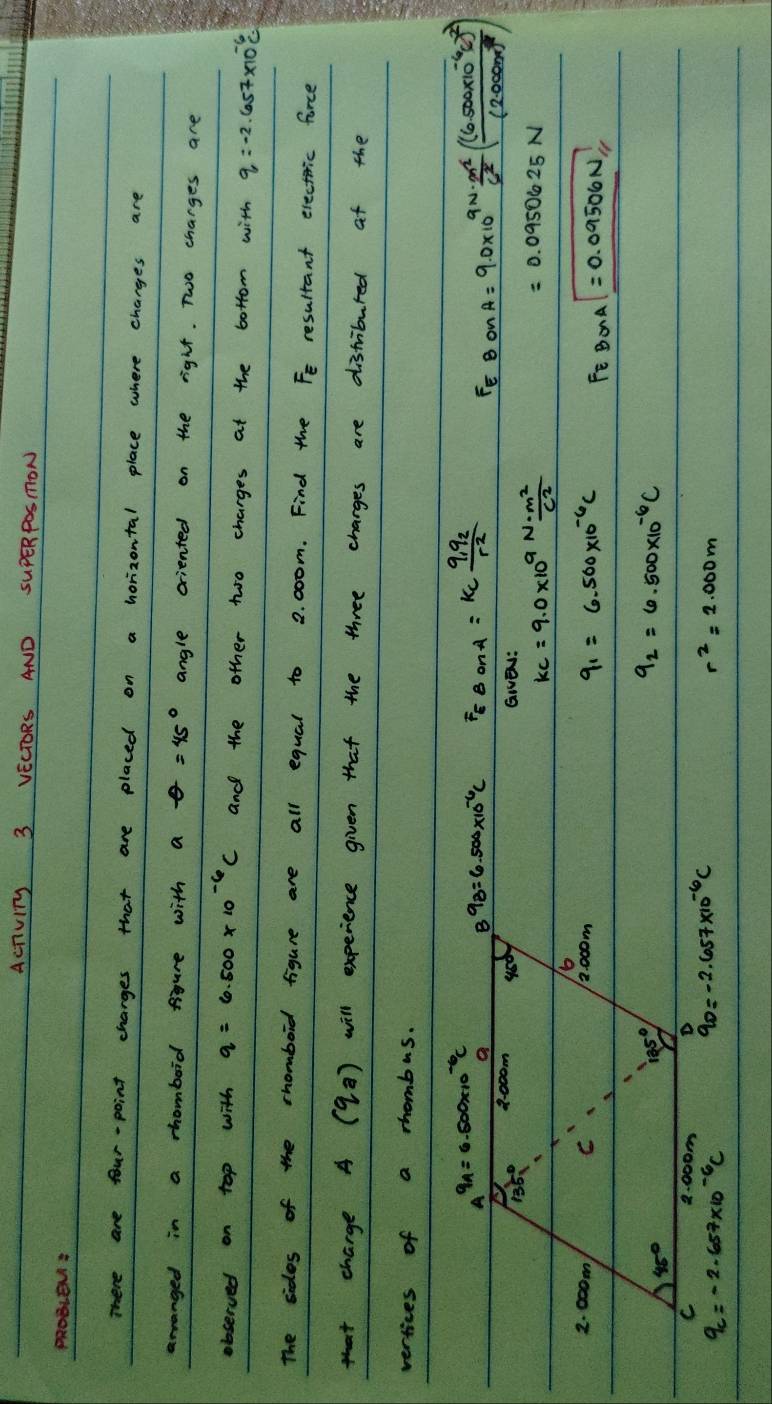 ACTIVITY 3 VECTORS AND SUPERPOSITION
PROBLEM:
There are four-point charges that are placed on a horizontal place where charges are
arranged in a rhomboid figure with a θ = 45° angle oriented on the right. Two charges are
observed on top with q = 6.500 x 10⁻⁶ C and the other two charges at the bottom with q = -2.657x10⁻⁶ C
The sides of the rhomboid figure are all equal to 2.000m. Find the FE resultant electric force
that charge A (qa) will experience given that the three charges are distributed at the
vertices of a rhombus.
A qA = 6.500x10⁻⁶C
B qB = 6.500x10⁻⁶C
135°
a
2.000m
45°
2.000m
c
b
2.000m
45°
135°
C
2.000m
D
qC = -2.657x10⁻⁶C
qD = -2.657x10⁻⁶C
FE B on A = Kc q1q2/r²
GIVEN:
Kc = 9.0x10⁹ N·m²/C²
q1 = 6.500x10⁻⁶C
q2 = 6.500x10⁻⁶C
r² = 2.000m
FE B on A = 9.0x10⁹ N·m²/C² ((6.500x10⁻⁶C)²/(2.000m)²)
= 0.0950625 N
FE B on A = 0.09506N//